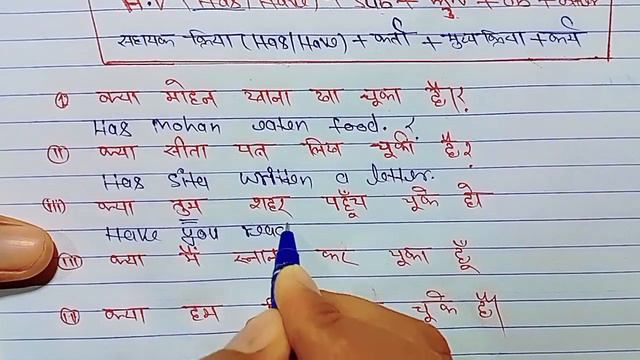 H.V (Has/Have) + Sub +
सहायक क्रिया (Has/Have) + कर्ता + मुख्य क्रिया + कर्म
(i) क्या मोहन खाना खा चूका है।?
Has Mohan eaten food. ?
(ii) क्या सीता पत्र लिख चूकी है?
Has Sita written a letter.
(iii) क्या तुम शहर पहुँच चूके हो
Have you reac
(iii) क्या मैं स्नान कर चूका हूँ
क्या हम चूके हैं।